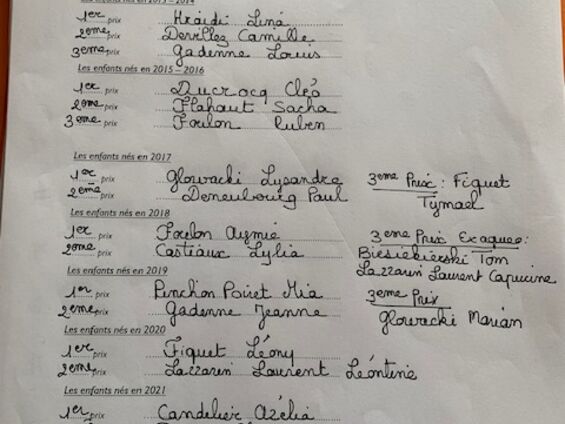 Les enfants nés en 2013 – 2014
1er prix Hraidi Lina
2ème prix Dervllez Camille
3ème prix Gadenne Louis
Les enfants nés en 2015 – 2016
1er prix Ducrocq Cléo
2ème prix Flahaut Sacha
3ème prix Foulon Ruben
Les enfants nés en 2017
1er prix Glowacki Lysandre
2ème prix Deneubourg Paul
3ème Prix : Fiquet
Tymael
Les enfants nés en 2018
1er prix Foulon Aymié
2ème prix Castiaux Lylia
3ème Prix Exaquo :
Biesiekierski Tom
Lazzarin Laurent Capucine
Les enfants nés en 2019
1er prix Penchon Poiret Mia
2ème prix Gadenne Jeanne
3ème Prix
Glowacki Marian
Les enfants nés en 2020
1er prix Fiquet Léony
2ème prix Lazzarin Laurent Léontine
Les enfants nés en 2021
1er prix Candelier Azélia